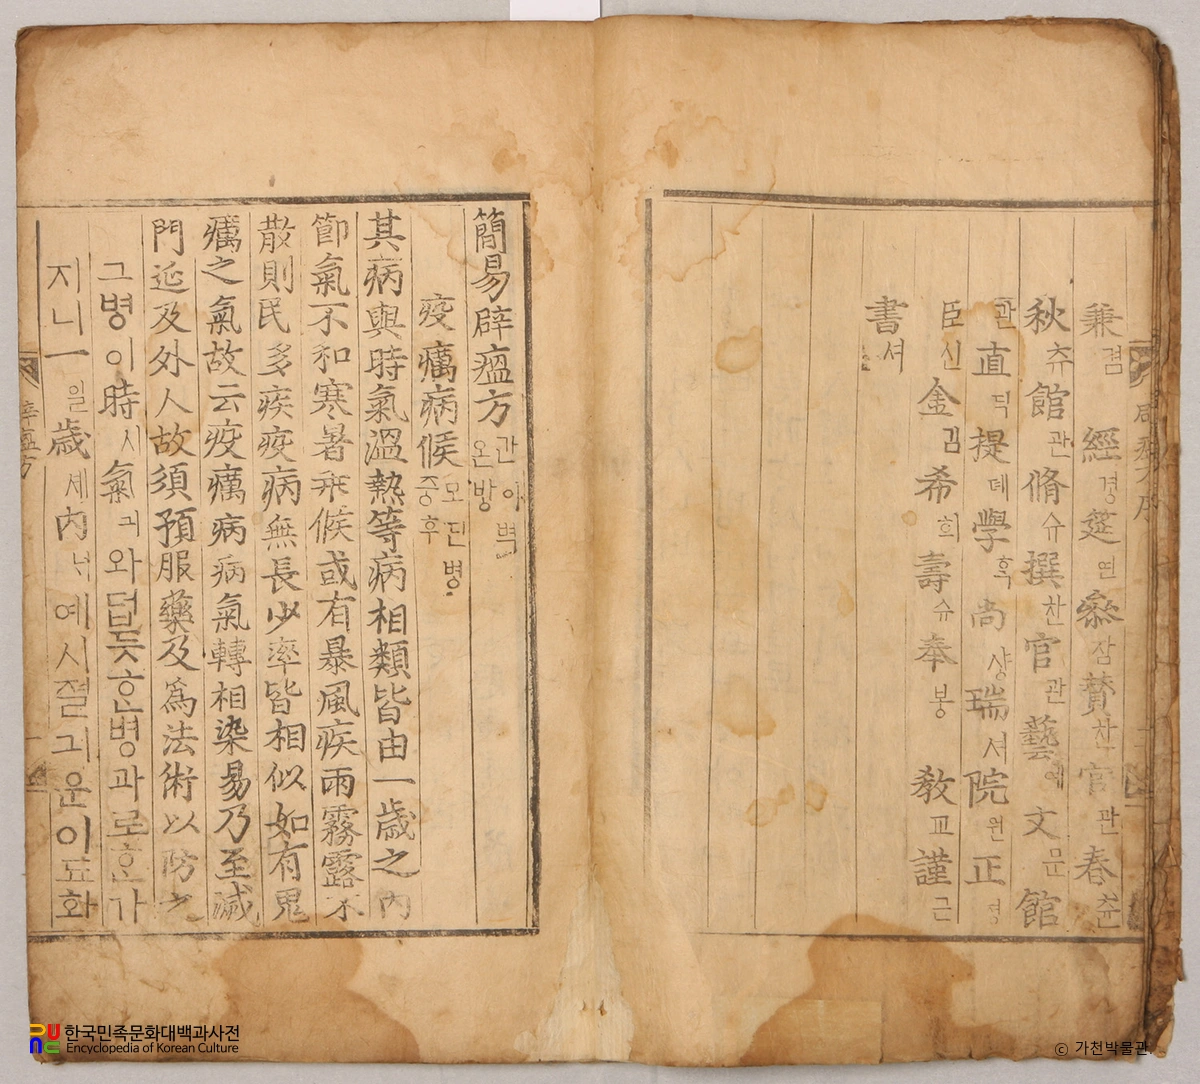 兼겸經경筵연叅참賛찬官관春춘
秋츄館관脩슈撰찬官관藝예文문館
관直딕提뎨學흑尙샹瑞셔院원正졍
臣신金김希희壽슈奉봉 敎교謹근
書셔
簡易辟瘟方간이벽온방
疫癘病候모딘병증후
其病與時氣溫熱等病相類皆由一歲之內
節氣不和寒暑乖候或有暴風疾雨霧露不
散則民多疾疫病無長少率皆相似如有鬼
癘之氣故云疫癘病病氣轉相染易乃至滅
門延及外人故須預服藥及爲法術以防之
그병이時시氣긔와덥듯ᄒᆞᆫ병과로ᄒᆞᆫ가
지니一일歲셰內ᄂᆡ예시졀긔운이됴화
辟瘟方
한국민족문화대백과사전
Encyclopedia of Korean Culture
© 가천박물관.